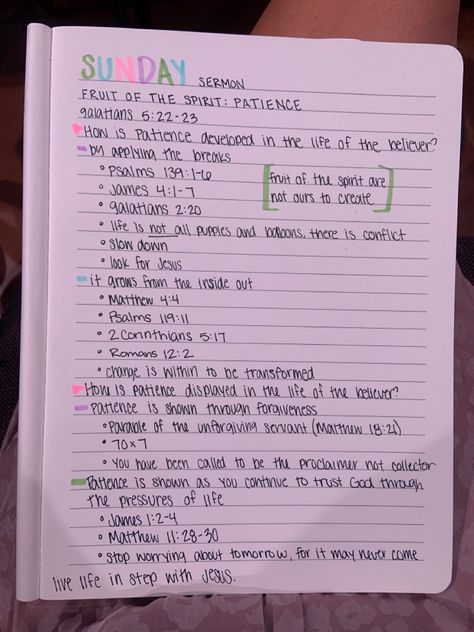 SUNDAY SERMON
FRUIT OF THE SPIRIT: PATIENCE
galatians 5:22-23
How is patience developed in the life of the believer?
by applying the breaks
• Psalms 139:1-6
• James 4:1-7
• galatians 2:20
[fruit of the spirit are
not ours to create]
• life is not all puppies and balloons, there is conflict
• slow down
• look for Jesus
it grows from the inside out
• Matthew 4:4
• Psalms 119:11
• 2 Corinthians 5:17
• Romans 12:2
• change is within to be transformed
How is patience displayed in the life of the believer?
patience is shown through forgiveness
• Parable of the unforgiving servant (Matthew 18:21)
• 70x7
• you have been called to be the proclaimer not collector
Patience is shown as you continue to trust God through
the pressures of life
• James 1:2-4
• Matthew 11:28-30
• stop worrying about tomorrow, for it may never come
live life in step with Jesus.